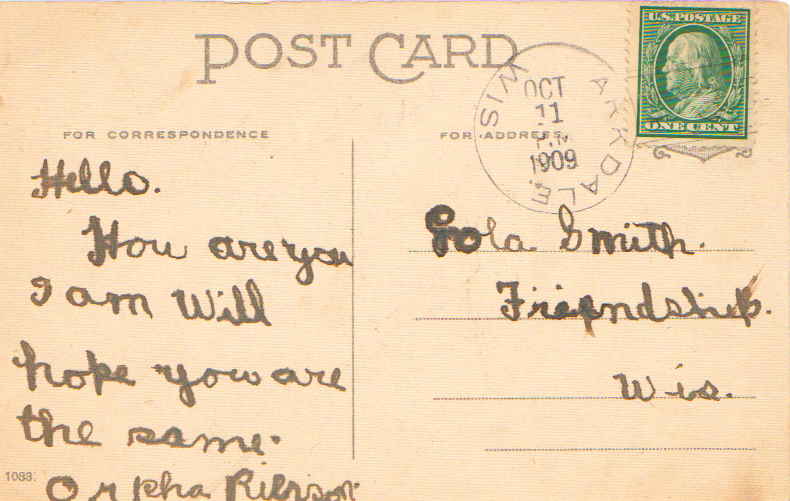 POST CARD
U.S. POSTAGE
ONE CENT
ARKDALE
WIS
OCT
11
1909
FOR CORRESPONDENCE
FOR ADDRESS
Hello.
How are you
I am Will
hope you are
the same.
Orpha
Lola Smith.
Friendship.
Wis.
1083.